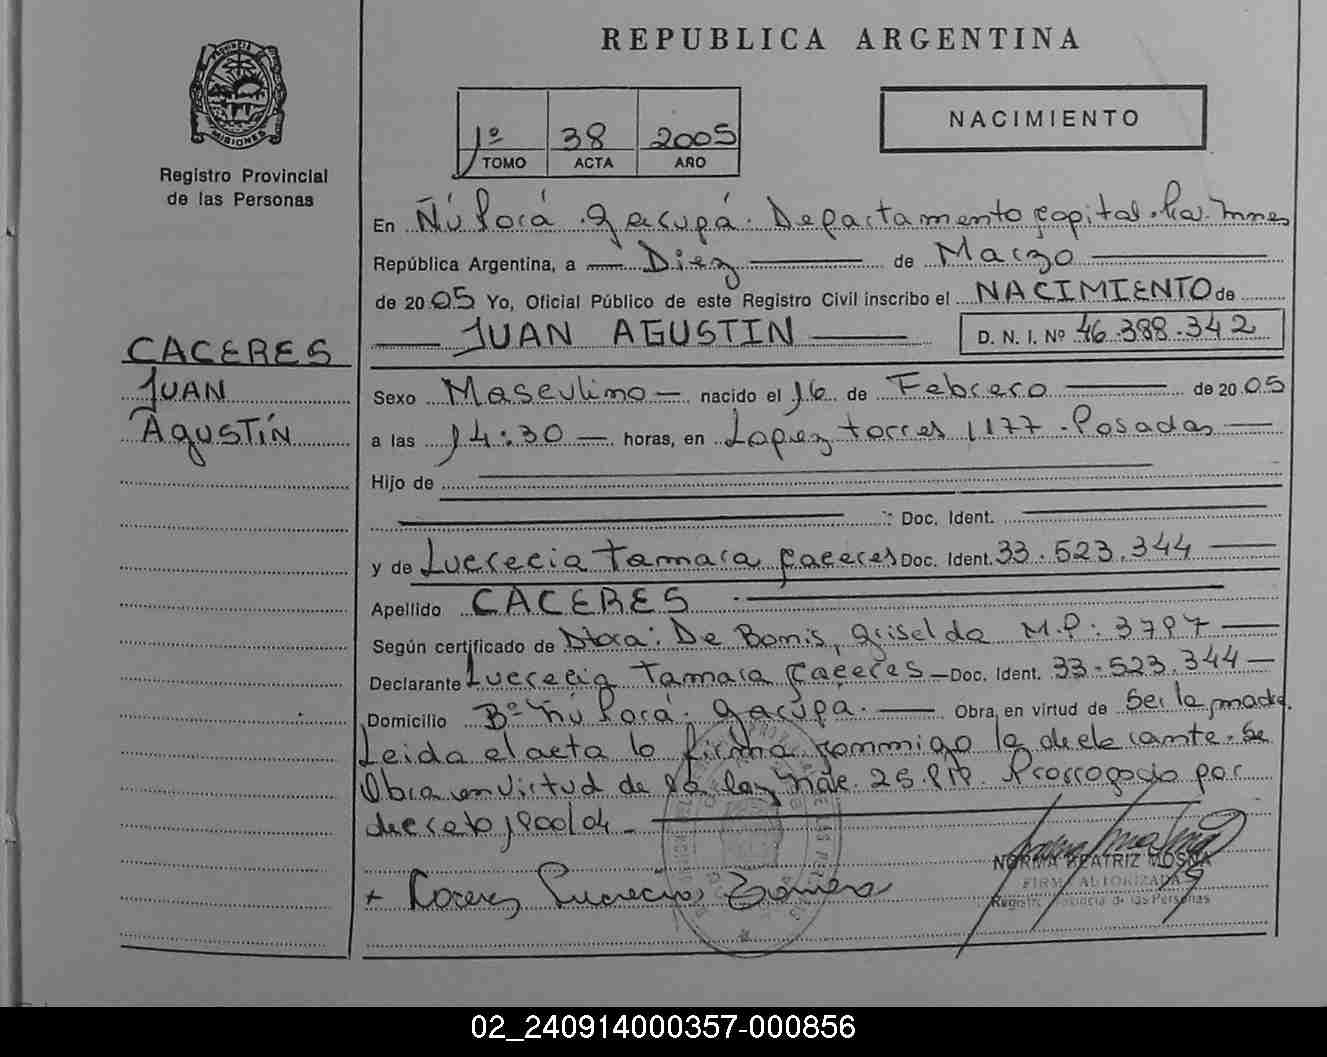 REPUBLICA ARGENTINA
PROVINCIA DE
MISIONES
Registro Provincial
de las Personas
1º 38 2005
TOMO ACTA AÑO
NACIMIENTO
En Ñú Porá . Garupá . Departamento Capital . Mnes
República Argentina, a Diez de Marzo
de 2005 Yo, Oficial Público de este Registro Civil inscribo el NACIMIENTO de
JUAN AGUSTIN D. N. I. Nº 46.388.342
CACERES
JUAN
AgUSTÍN
Sexo Masculino nacido el 16 de Febrero de 2005
a las 14:30 horas, en Lopez torres 1177 - Posadas
Hijo de
Doc. Ident.
y de Lucrecia tamara Caceres Doc. Ident. 33.523.344
Apellido CACERES
Según certificado de Dtora: De Bonis, Griselda M.P: 3797
Declarante Lucrecia Tamara Caceres Doc. Ident. 33.523.344
Domicilio Bº Ñú Porá . Garupá . Obra, en virtud de Ser la madre.
Leida el acta la firma conmigo la declarante. Se
Obra en virtud de la ley Nac. 25. Prorrogada por
decreto 1900/04
Caceres Lucrecia Tamara
NORMA BEATRIZ MOSNA
FIRMA AUTORIZADA
Registro Provincial de las Personas
02_240914000357-000856